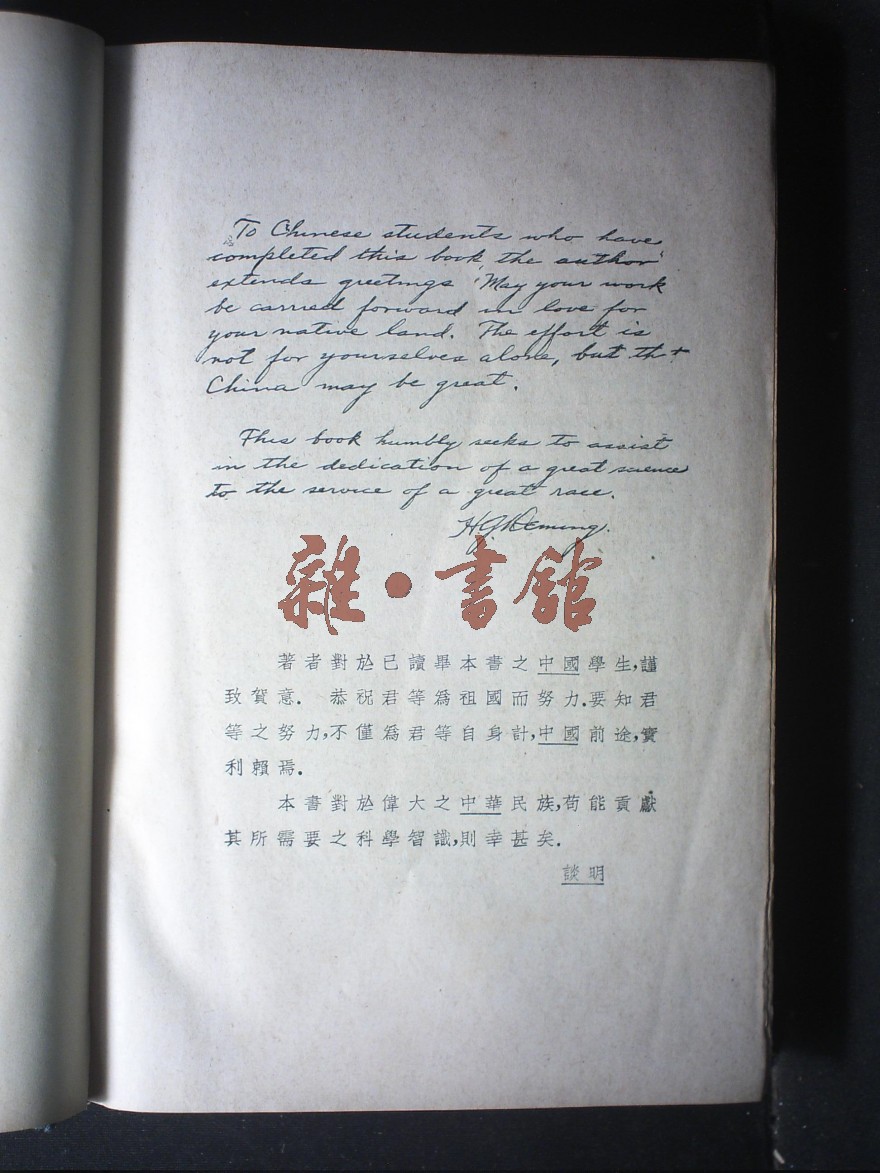 To Chinese students who have
completed this book the author
extends greetings. May your work
be carried forward in love for
your native land. The effort is
not for yourselves alone, but tht
China may be great.
This book humbly seeks to assist
in the dedication of a great science
to the service of a great race.
H G Deming.
雜·書館
著者對於已讀畢本書之中國學生,謹
致賀意. 恭祝君等為祖國而努力.要知君
等之努力,不僅為君等自身計,中國前途,實
利賴焉.
本書對於偉大之中華民族,苟能貢獻
其所需要之科學智識,則幸甚矣.
談明